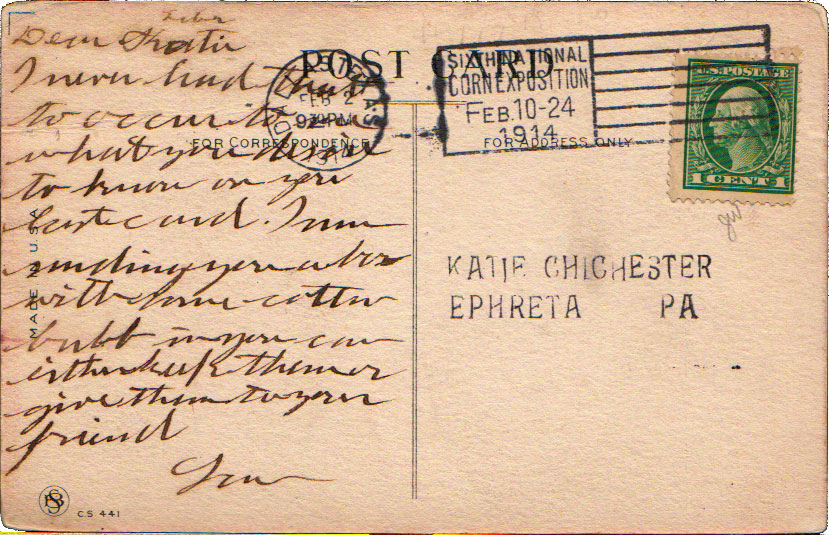 Febr
Dear Katie
I never had that
to occur to
what you desire
to know on you
card. I am
sending you a box
with some cotton
in you can
either keep them or
give them to your
friend
POST CARD
FOR CORRESPONDENCE
MADE IN USA
FEB 2
930PM
SIXTH NATIONAL
CORN EXPOSITION
FEB. 10-24
1914
FOR ADDRESS ONLY
U.S. POSTAGE
1 CENT 1
KATIE CHICHESTER
EPHRETA PA
C.S 441